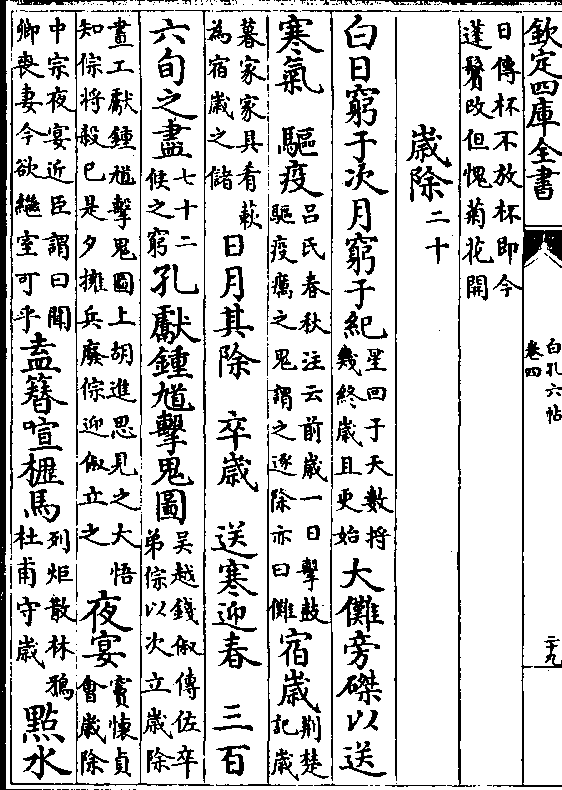 欽定四庫全書
白孔六帖
卷四
二十九
日傳杯不放杯即今
蓬鬢改但愧菊花開
歲除二十
白日窮于次月窮于紀星回于天數將幾終歲且更始大儺旁磔以送
寒氣 驅疫呂氏春秋注云前歲一日擊鼓驅疫癘之鬼謂之逐除亦曰儺宿歲荆楚記歲
暮家家具肴蔌為宿歲之儲日月其除 卒歲 送寒迎春 三百
六旬之盡七十二使之窮孔獻鍾馗擊鬼圖吳越錢俶傳佐卒弟倧以次立歲除
畫工獻鍾馗擊鬼圖上胡進思見之大悟知倧將殺已是夕擁兵廢倧迎俶立之夜宴竇懷貞會歲除
中宗夜宴近臣謂曰聞卿喪妻今欲繼室可乎盍簪喧櫪馬列炬散林鴉杜甫守歲點水